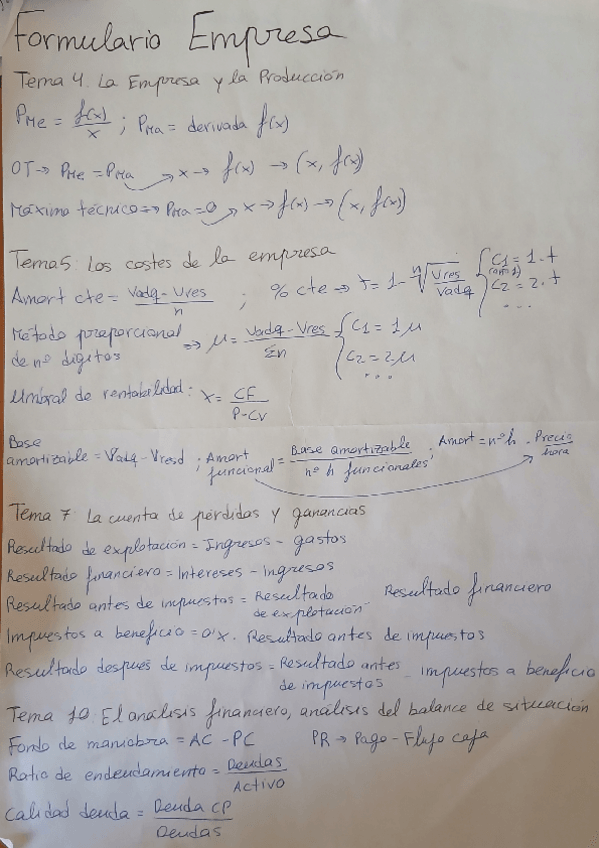 Formulario Empresa
Tema 4. La Empresa y la Producción
PMe = f(x)/x ; PMa = derivada f(x)
OT → PMe = PMa → x → f(x) → (x, f(x))
Máximo técnico ⇒ PMa = 0 → x → f(x) → (x, f(x))
Tema 5: Los costes de la empresa
Amort cte = Vadq - Vres / n ; % cte ⇒ t = 1 - ⁿ√(Vres/Vadq) { C1 = 1 . t (año 1) C2 = 2 . t ...
Método proporcional de nº dígitos ⇒ μ = Vadq - Vres / Σn { C1 = 1 μ C2 = 2 . μ ...
Umbral de rentabilidad: x = CF / P - CV
Base amortizable = Vadq - Vresd ; Amort funcional = Base amortizable / nº h funcionales ; Amort = nº h . Precio hora
Tema 7: La cuenta de pérdidas y ganancias
Resultado de explotación = Ingresos - gastos
Resultado financiero = Intereses - Ingresos
Resultado antes de impuestos = Resultado de explotación - Resultado financiero
Impuestos a beneficio = 0'x . Resultado antes de impuestos
Resultado después de impuestos = Resultado antes de impuestos - impuestos a beneficio
Tema 10: El análisis financiero, análisis del balance de situación
Fondo de maniobra = AC - PC PR → Pago - Flujo caja
Ratio de endeudamiento = Deudas / Activo
Calidad deuda = Deuda CP / Deudas